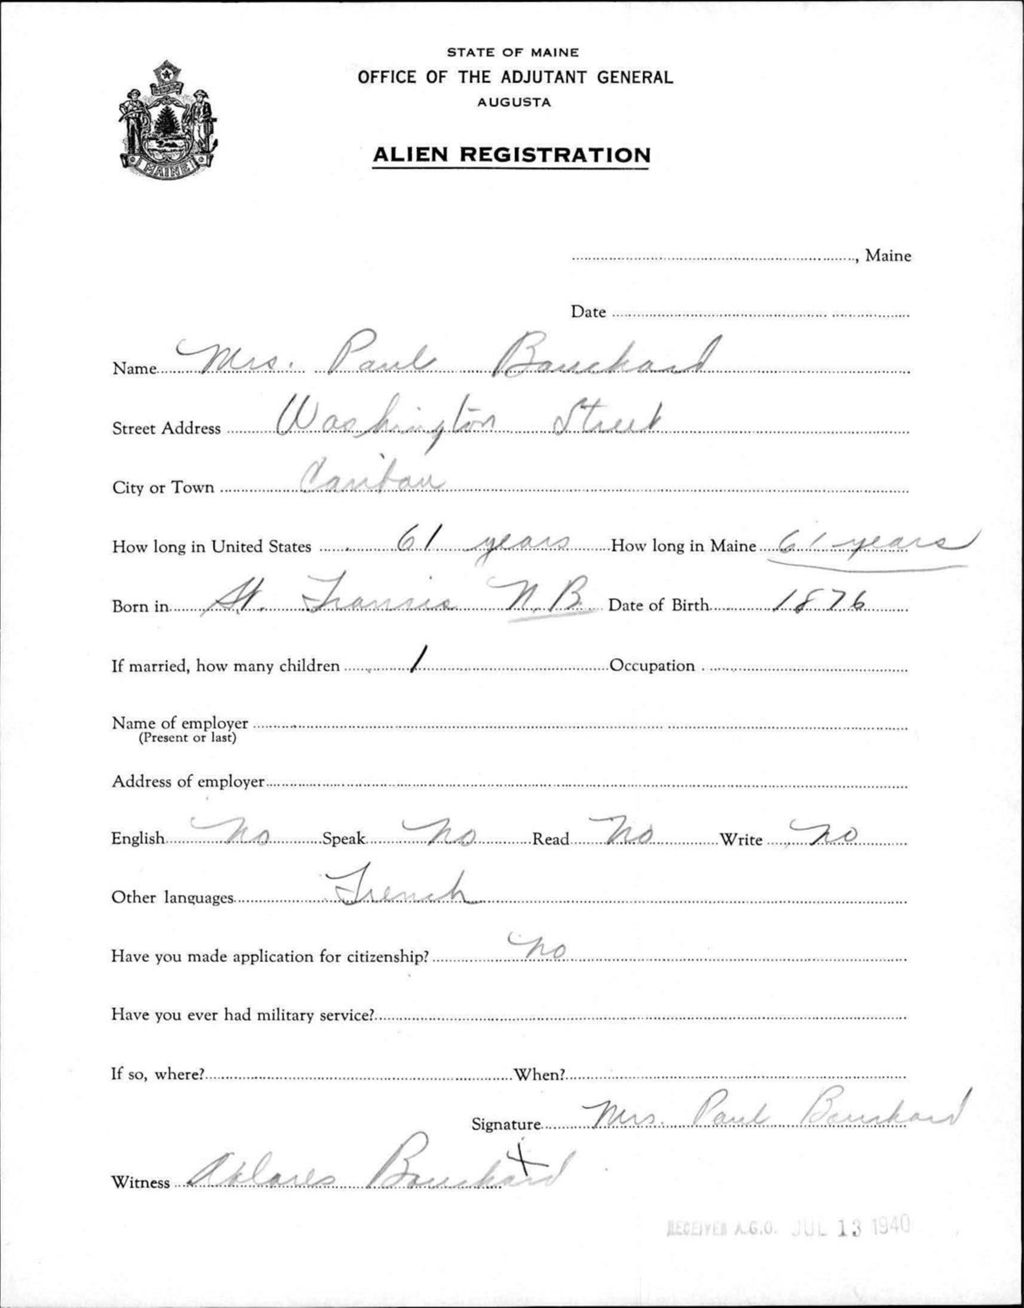 STATE OF MAINE
OFFICE OF THE ADJUTANT GENERAL
AUGUSTA
ALIEN REGISTRATION
MAINE
, Maine
Date
Name Mrs. Paul Bouchard
Street Address Washington Street
City or Town Caribou
How long in United States 61 years How long in Maine 61 years
Born in St. Francis N.B. Date of Birth 1876
If married, how many children 1 Occupation
Name of employer
(Present or last)
Address of employer
English No Speak No Read No Write No
Other languages French
Have you made application for citizenship? No
Have you ever had military service?
If so, where? When?
Signature Mrs. Paul Bouchard
X
Witness Bouchard
RECEIVED A.G.O. JUL 13 1940